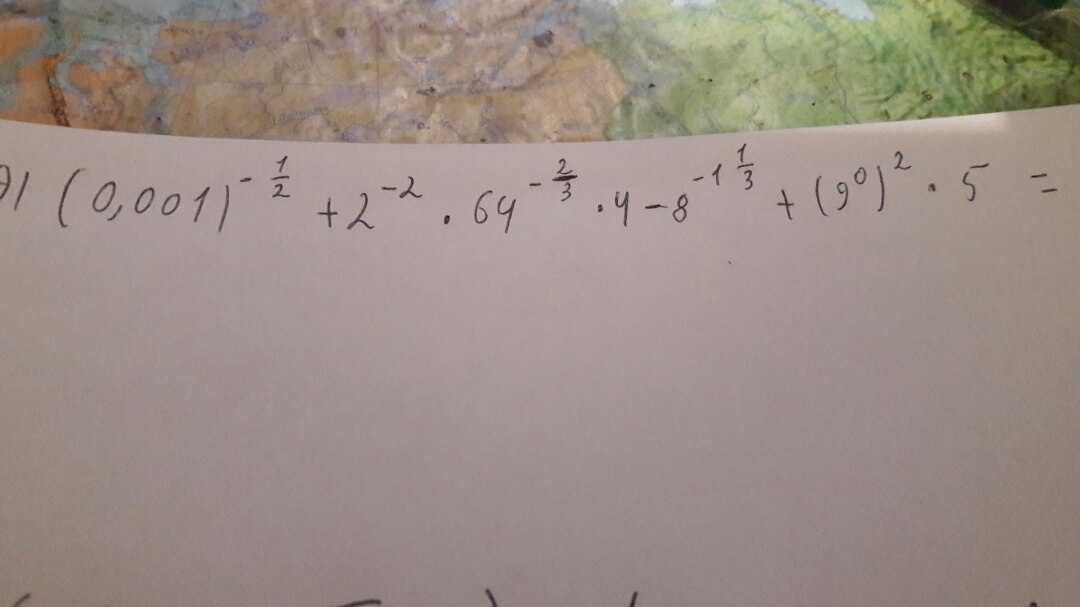 д) (0,001)^{-\frac{1}{2}} + 2^{-2} · 64^{-\frac{2}{3}} · 4 - 8^{-1\frac{1}{3}} + (9^0)^2 · 5 =